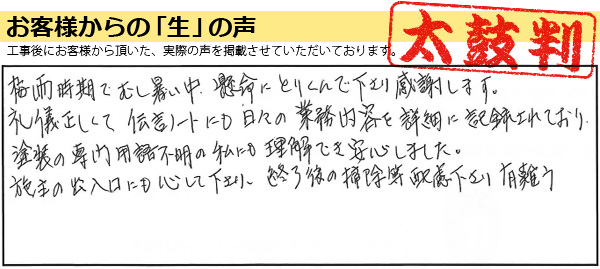 お客様からの「生」の声
工事後にお客様から頂いた、実際の声を掲載させていただいております。
太鼓判
梅雨時期でむし暑い中、懸命にとりくんで下さり感謝します。
礼儀正しくて伝言ノートにも日々の業務内容を詳細に記録されており、
塗装の専門用語不明の私にも理解でき安心しました。
施主の出入口にも心して下さり、終了後の掃除等配慮下さり有難う